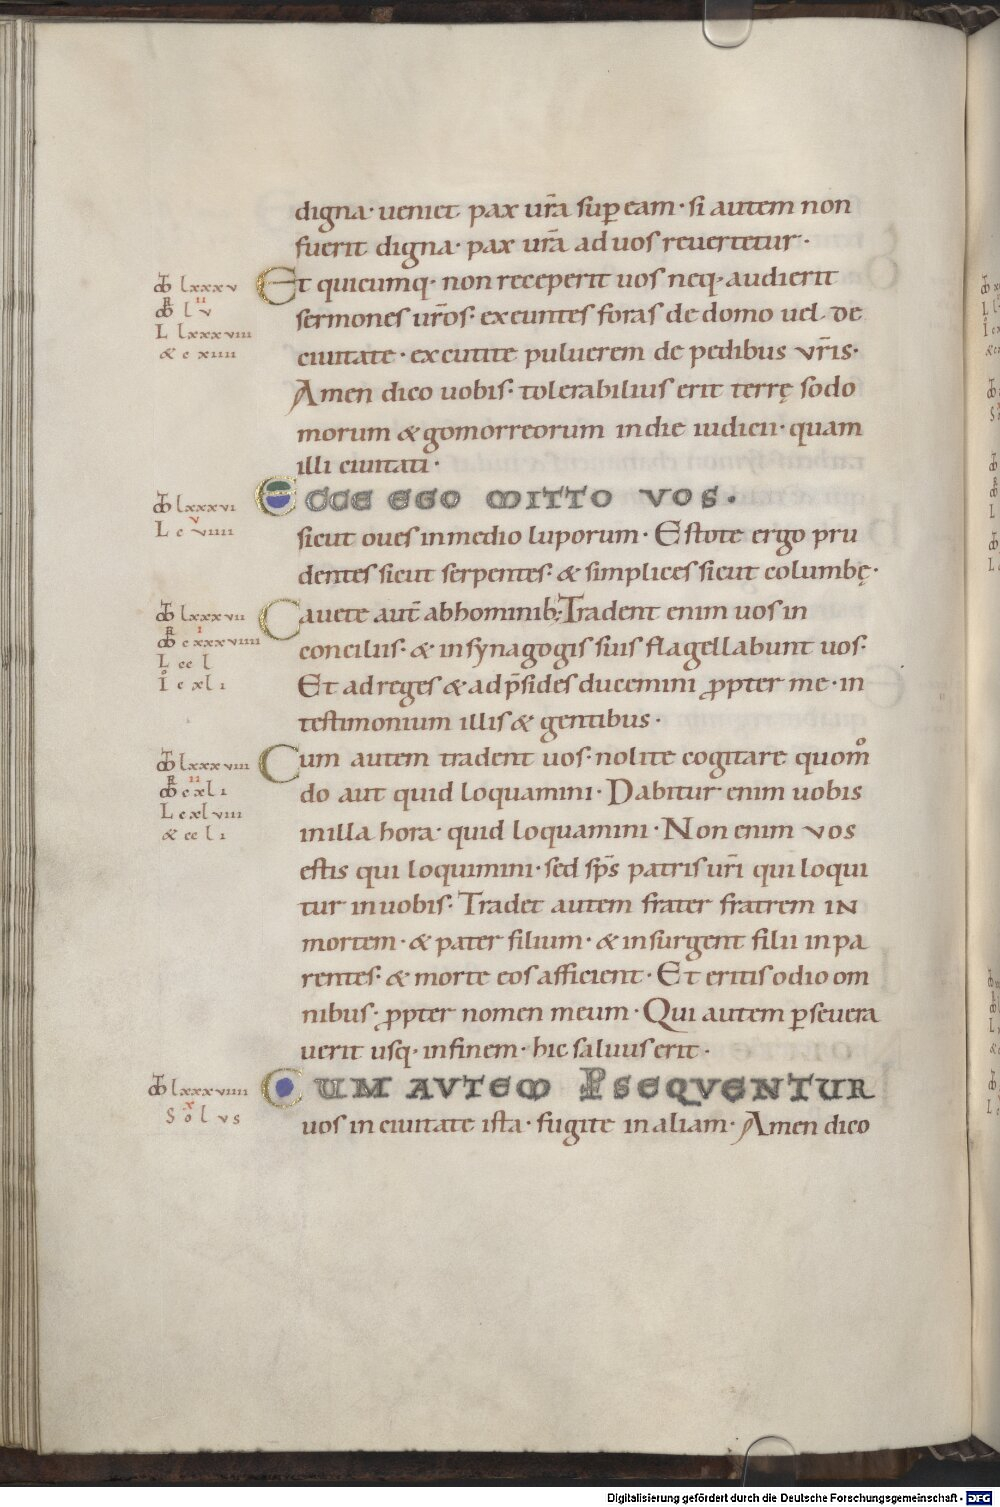 digna· ueniet pax ur̄a sup̱ eam· si autem non
fuerit digna· pax ur̄a ad uos reuertetur·
Et quicumq· non receperit uos neq· audierit
sermones ur̄os· exeuntes foras de domo uel de
ciuitate· excutite puluerem de pedibus vr̄is·
Amen dico uobis· tolerabilius erit terrę sodo
morum & gomorreorum in die iudicii· quam
illi ciuitati·
ECCE EGO MITTO VOS·
sicut oues in medio luporum· Estote ergo pru
dentes sicut serpentes· & simplices sicut columbę·
Cauete aut̄ ab hominib; Tradent enim uos in
conciliis· & in synagogis suis flagellabunt uos·
Et ad reges & ad p̄sides ducemini ꝓpter me· in
testimonium illis & gentibus·
Cum autem tradent uos· nolite cogitare quom̊
do aut quid loquamini· Dabitur enim uobis
in illa hora· quid loquamini· Non enim vos
estis qui loquimini· sed sp̄s patris ur̄i qui loqui
tur in uobis· Tradet autem frater fratrem IN
mortem· & pater filium· & insurgent filii in pa
rentes· & morte eos afficient· Et eritis odio om
nibus· ꝓpter nomen meum· Qui autem ꝑseuera
uerit usq· in finem· hic saluus erit·
CUM AVTEM ꝐSEQVENTUR
uos in ciuitate ista· fugite in aliam· Amen dico
lxxxv
l v
L lxxxviii
& c xiiii
lxxxvi
L c viiii
lxxxvii
c xxxviiii
L cc l
I c xl i
lxxxviii
c xl i
L c xlviii
& cc l i
lxxxviiii
Solus
Digitalisierung gefördert durch die Deutsche Forschungsgemeinschaft - DFG